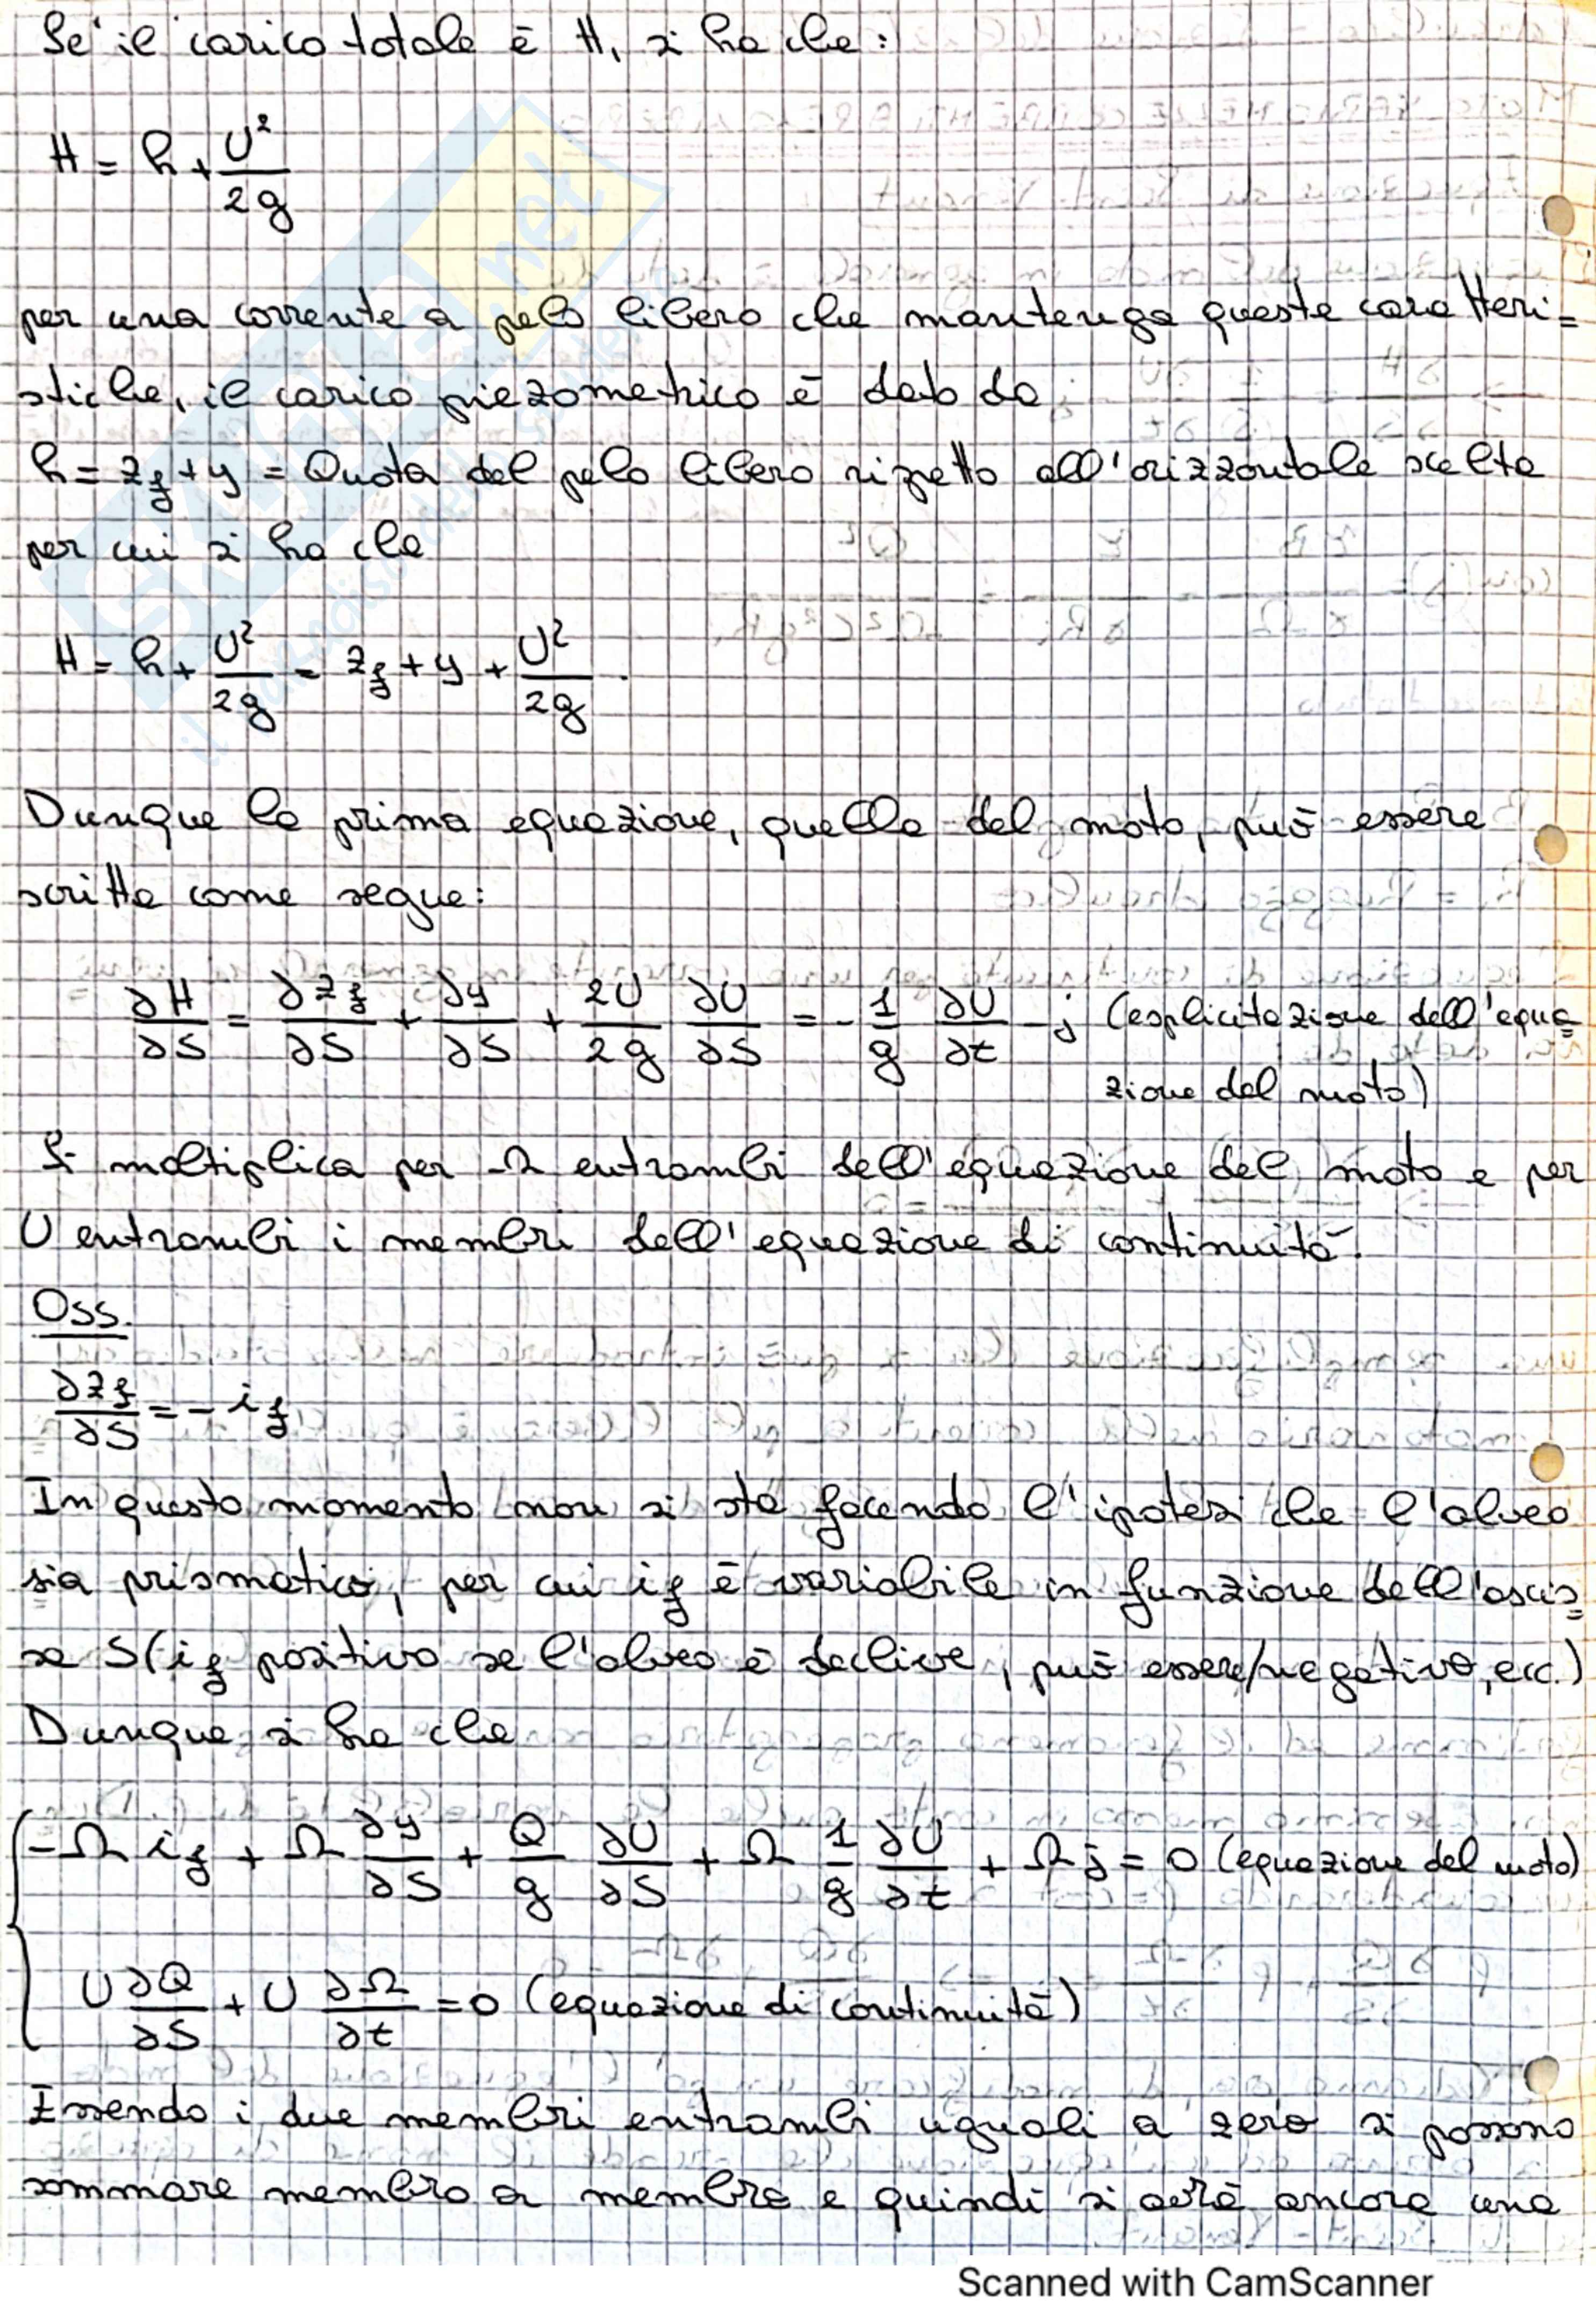 Se il carico totale è H, si ha che:
H = h + U²/2g
per una corrente a pelo libero che mantenga queste caratteri=
stiche, il carico piezometrico è dato da
h = z_f + y = Quota del pelo libero rispetto all'orizzontale scelta
per cui si ha che
H = h + U²/2g = z_f + y + U²/2g.
Dunque la prima equazione, quella del moto, può essere
scritta come segue:
∂H/∂S = ∂z_f/∂S + ∂y/∂S + 2U/2g ∂U/∂S = - 1/g ∂U/∂t - j (esplicitazione dell'equa=
zione del moto)
Si moltiplica per Ω entrambi dell'equazione del moto e per
U entrambi i membri dell'equazione di continuità.
Oss.
∂z_f/∂S = - i_f
In questo momento non si sta facendo l'ipotesi che l'alveo
sia prismatico, per cui i_f è variabile in funzione dell'ascis=
sa S (i_f positivo se l'alveo è declive, può essere negativo, ecc.)
Dunque si ha che
-Ω i_f + Ω ∂y/∂S + Q/g ∂U/∂S + Ω 1/g ∂U/∂t + Ω j = 0 (equazione del moto)
U ∂Q/∂S + U ∂Ω/∂t = 0 (equazione di continuità)
Essendo i due membri entrambi uguali a zero si possono
sommare membro a membro e quindi si avrà ancora una
Scanned with CamScanner